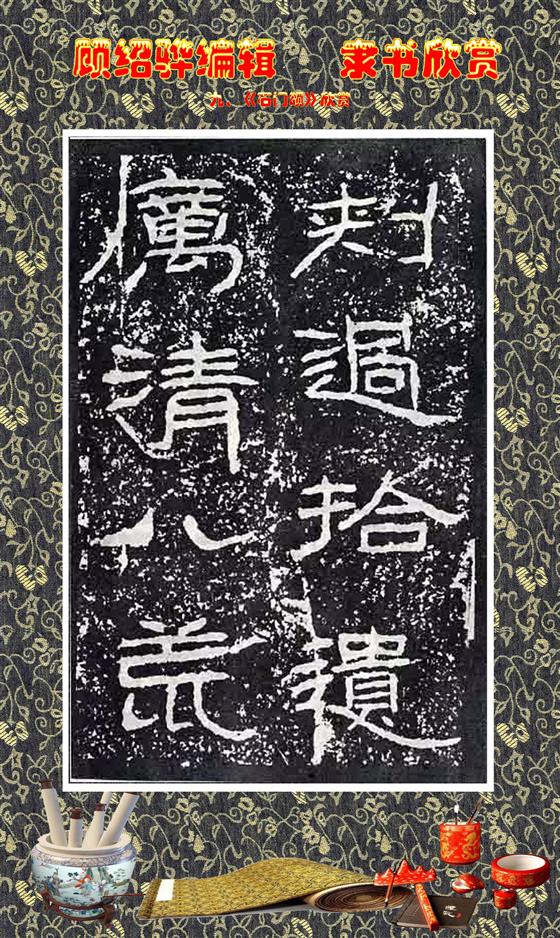 顾绍骅编辑 隶书欣赏
九、《石门颂》欣赏
刺過拾遺
厲清八荒